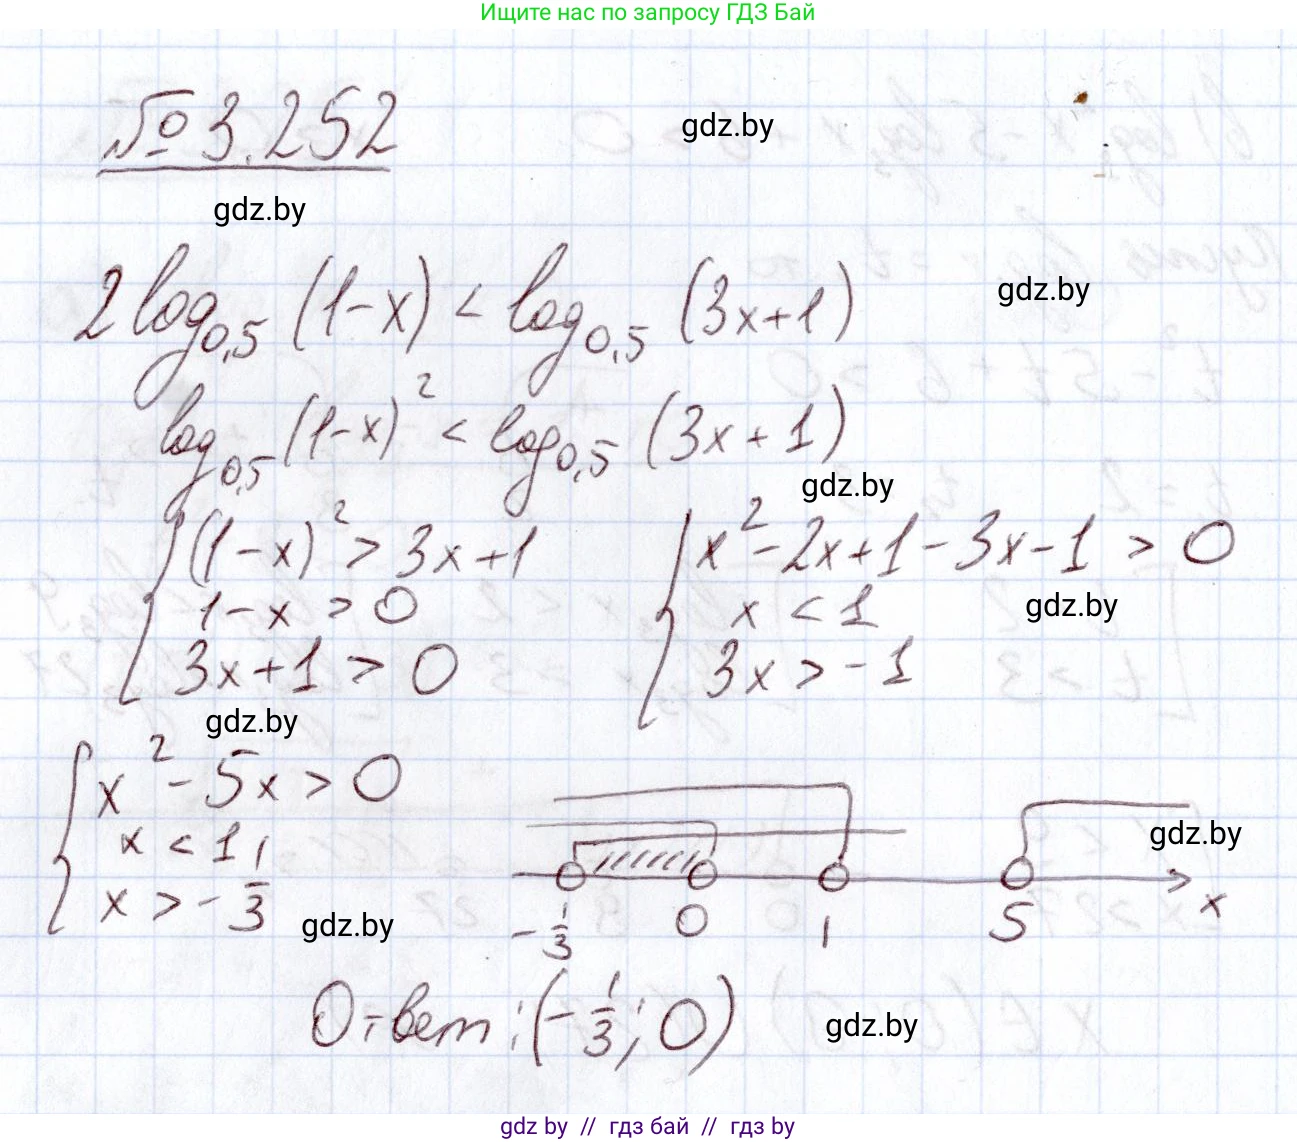 Ищите нас по запросу ГДЗ Бай
№ 3.252
gdz.by
gdz.by
2log₀,₅ (1-x) < log₀,₅ (3x+1)
gdz.by
log₀,₅ (1-x)² < log₀,₅ (3x+1)
gdz.by
{ (1-x)² > 3x+1
1-x > 0
3x+1 > 0
{ x²-2x+1-3x-1 > 0
x < 1
3x > -1
gdz.by
gdz.by
{ x²-5x > 0
x < 1
x > -1/3
gdz.by
gdz.by
-1/3 0 1 5 x
Ответ: (-1/3; 0)
gdz.by
gdz by // гдз бай // гдз by